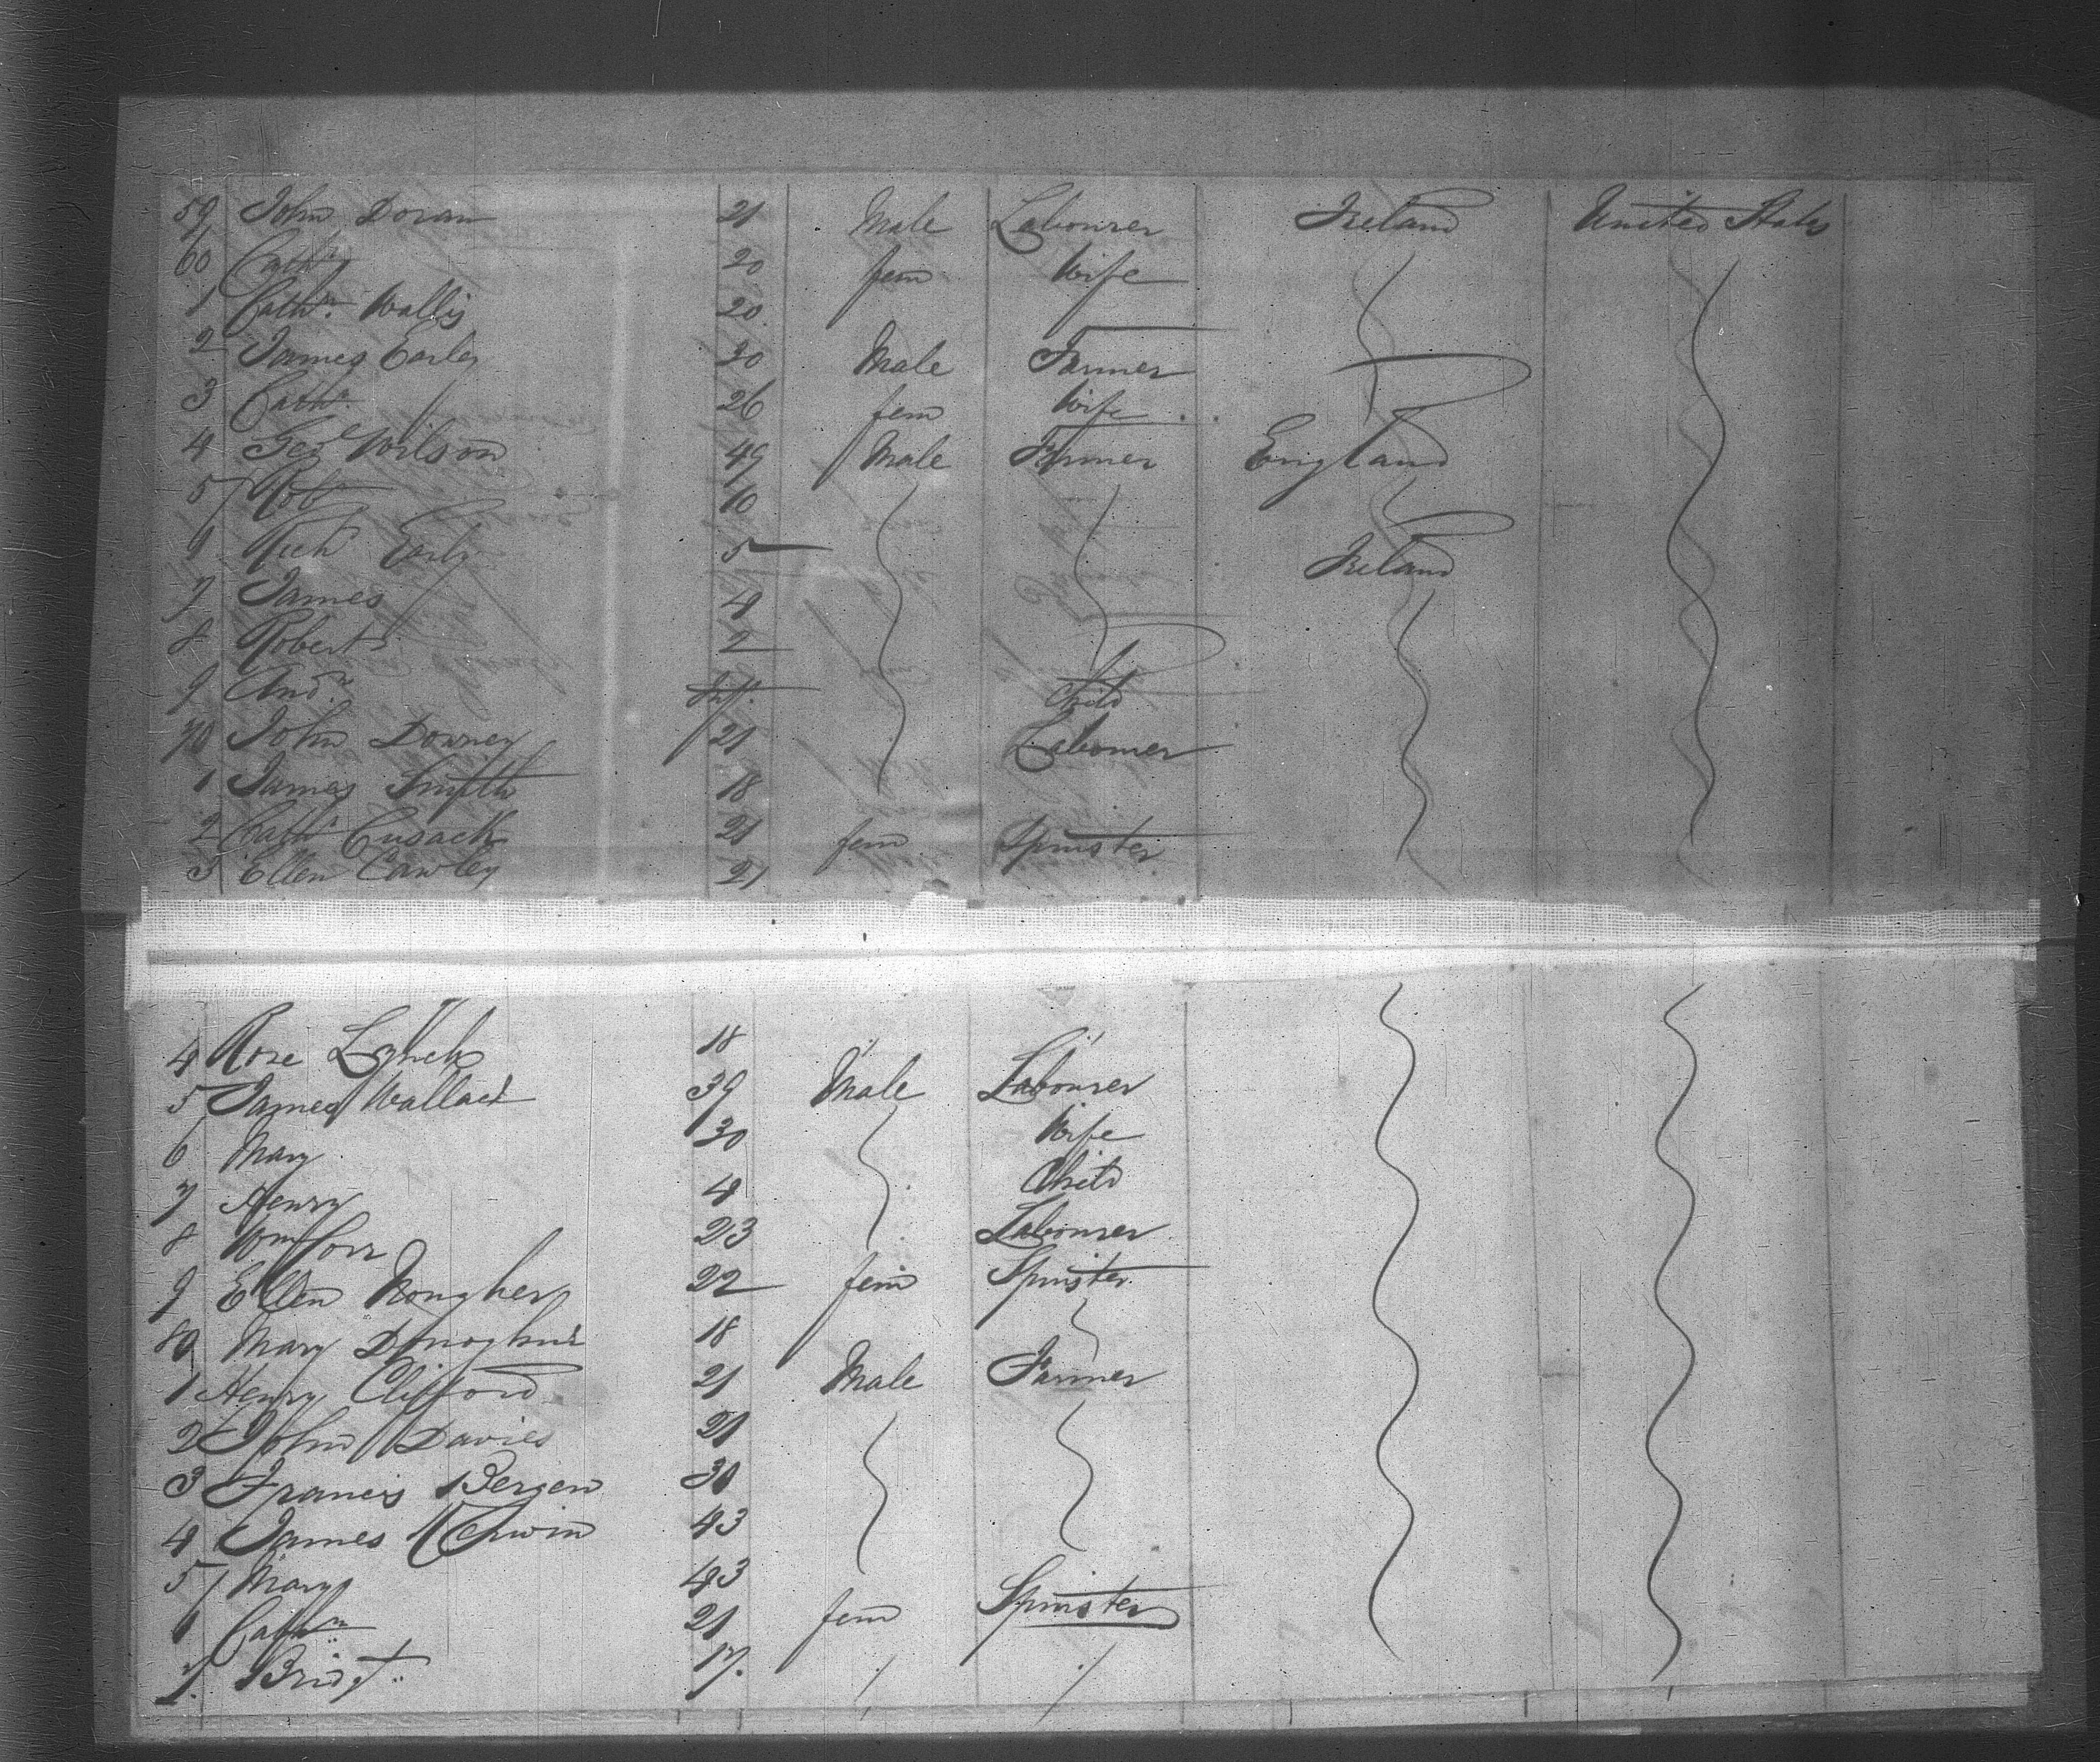 59 John Doran 21 Male Labourer Ireland United States
60 Cathn 20 fem Wife
1 Cathn Wallis 20
2 James Early 30 Male Farmer
3 Cathn 26 fem Wife
4 Geoe Wilson 49 Male Farmer England
5 Robt 10
6 Richd Early 5 Ireland
7 James 4
8 Robert 2
9 Andw Inft. Child
70 John Downey 21 Labourer
1 James Smith 18
2 Cathn Cusack 21 fem Spinster
3 Ellen Cawley 21
4 Rose Lynch 18 " "
5 James Wallace 39 Male Labourer
6 Mary 30 Wife
7 Henry 4 Child
8 Wm Corr 23 Labourer
9 Ellen 22 fem Spinster
80 Mary Donoghue 18
1 Henry Clifford 21 Male Farmer
2 John Davies 21
3 Francis Bergen 30
4 James Kerwin 43
5 Mary 43
6 Cathn 21 fem Spinster
7. Bridgt 17.